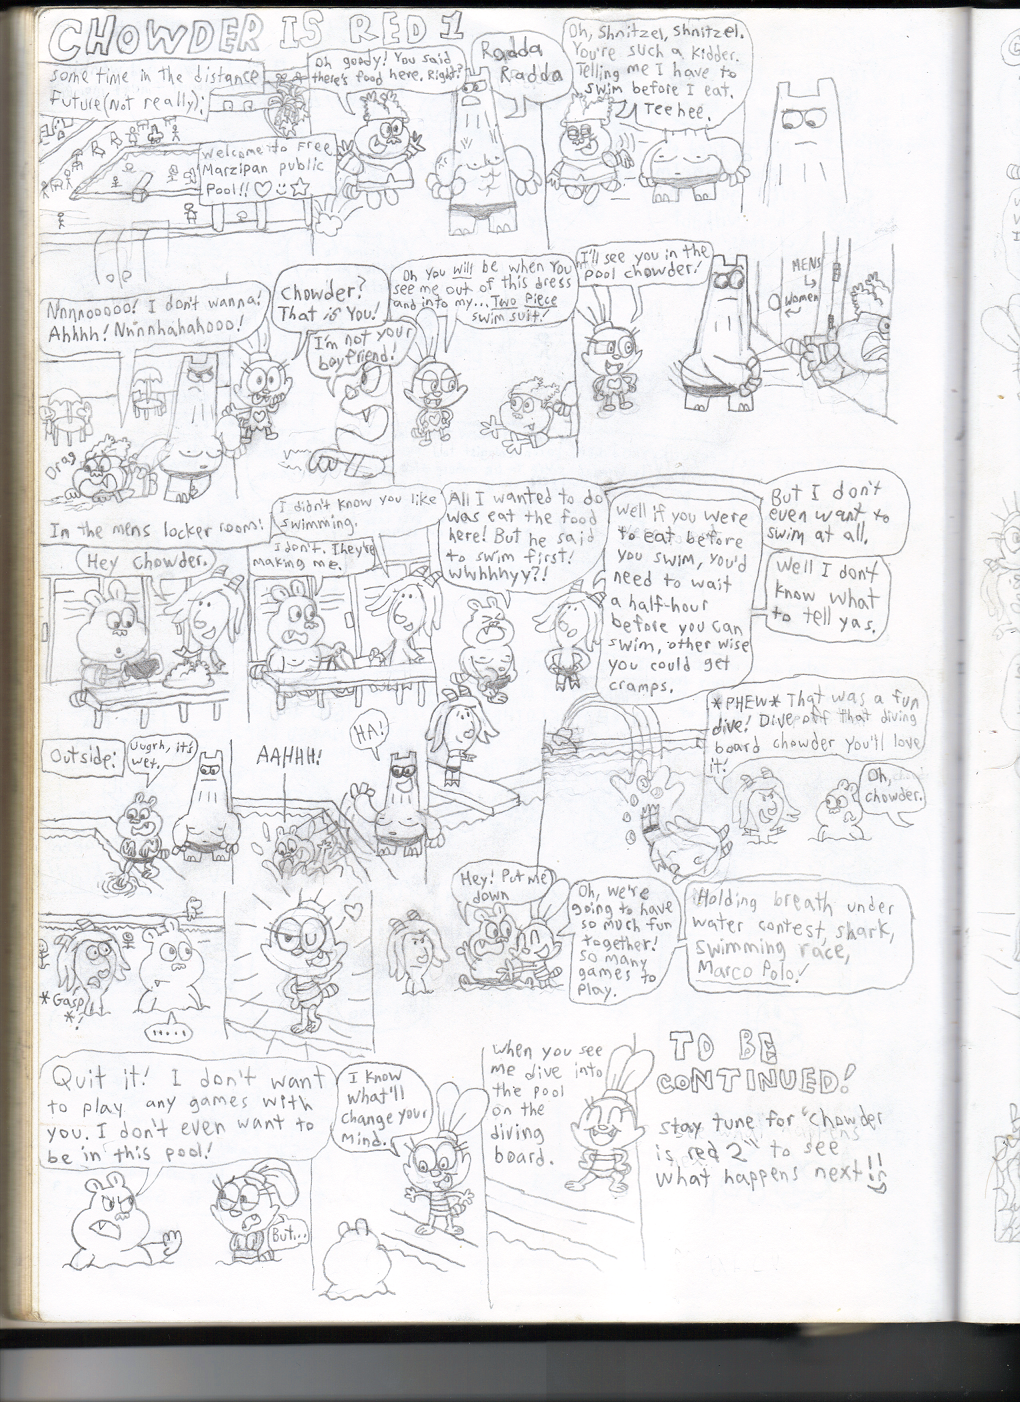 CHOWDER IS RED 1
some time in the distance
Future(Not really):
Welcome to Free
Marzipan public
Pool!! ♡☺☆
Oh goody! You said
there's food here, Right?
Radda
Radda
Oh, Shnitzel, Shnitzel.
You're such a kidder.
Telling me I have to
swim before I eat.
Teehee.
Nnnnooooo! I don't wanna!
Ahhhh! Nnnnhahahooo!
Drag
Chowder?
That is You!
I'm not your
boyfriend!
Oh you will be when You
see me out of this dress
and into my... Two Piece
swim suit!
I'll see you in the
pool chowder!
MENS
Women
In the mens locker room:
Hey Chowder.
I didn't know you like
swimming.
I don't. They're
making me.
All I wanted to do
was eat the food
here! But he said
to swim first!
Wwhhhyy?!
Well if you were
to eat before
you swim, you'd
need to wait
a half-hour
before you can
swim, other wise
you could get
cramps.
But I don't
even want to
swim at all.
Well I don't
know what
to tell yas.
Outside:
Uugrh, it's
wet.
AAHHH!
HA!
*PHEW* That was a fun
dive! Dive off that diving
board chowder you'll love
it!
Oh,
chowder.
*Gasp
*!
.....
Hey! Put me
down
Oh, we're
going to have
so much fun
together!
so many
games to
play.
Holding breath under
water contest, shark,
swimming race,
Marco Polo!
Quit it! I don't want
to play any games with
you. I don't even want to
be in this pool!
But...
I know
what'll
change your
mind.
When you see
me dive into
the pool
on the
diving
board.
TO BE
CONTINUED!
stay tune for "Chowder
is red 2" to see
what happens next!!